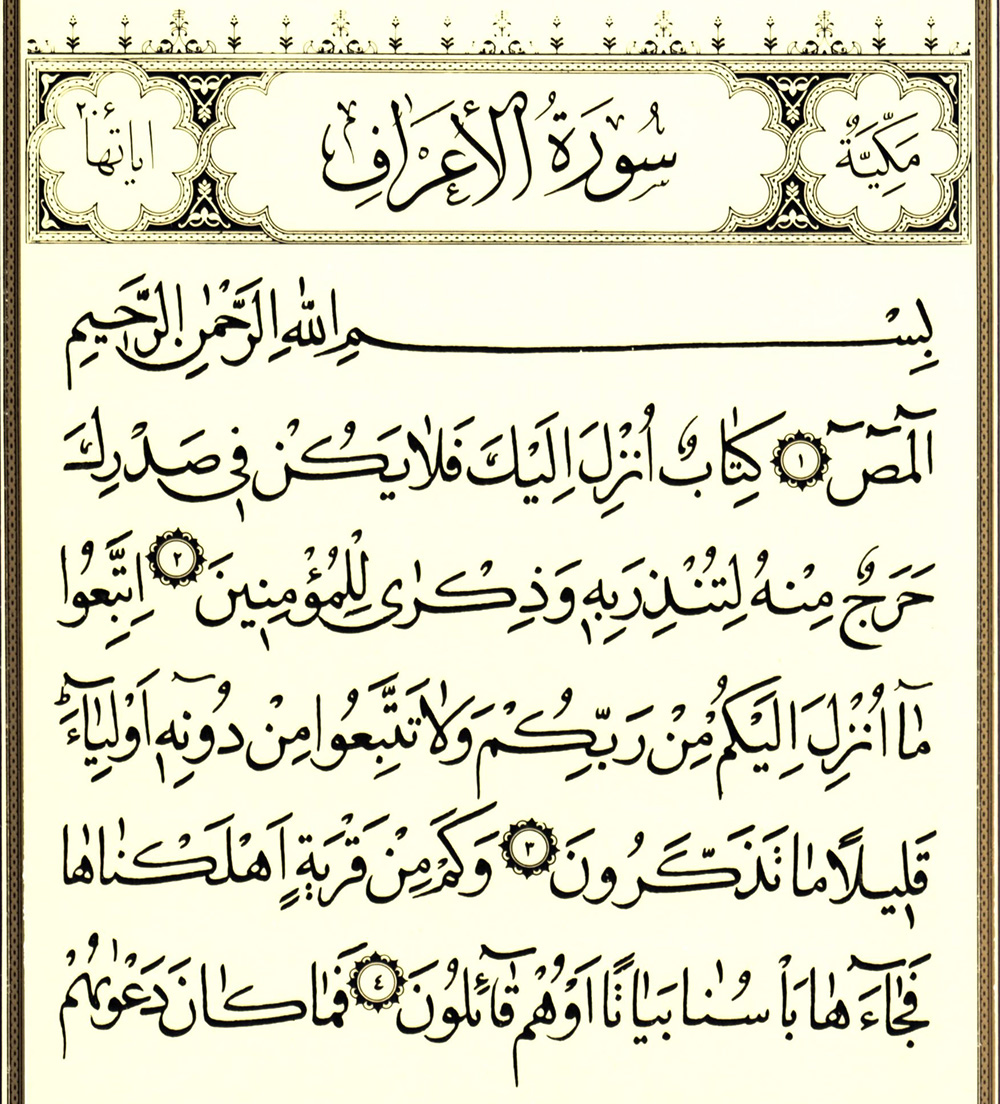 مَكِّيَّةٌ سُورَةُ الْأَعْرَافِ اٰيَاتُهَا ٢٠٦
بِسْمِ اللّٰهِ الرَّحْمٰنِ الرَّحِيمِ
الٓمٓصٓ ١ كِتَابٌ اُنْزِلَ اِلَيْكَ فَلَا يَكُنْ فِي صَدْرِكَ
حَرَجٌ مِنْهُ لِتُنْذِرَ بِهِ وَذِكْرٰى لِلْمُؤْمِنِينَ ٢ اِتَّبِعُوا
مَٓا اُنْزِلَ اِلَيْكُمْ مِنْ رَبِّكُمْ وَلَا تَتَّبِعُوا مِنْ دُونِهِٓ اَوْلِيَٓاءَ ط
قَلِيلًا مَا تَذَكَّرُونَ ٣ وَكَمْ مِنْ قَرْيَةٍ اَهْلَكْنَاهَا
فَجَٓاءَهَا بَأْسُنَا بَيَاتًا اَوْ هُمْ قَٓائِلُونَ ٤ فَمَا كَانَ دَعْوٰيهُمْ